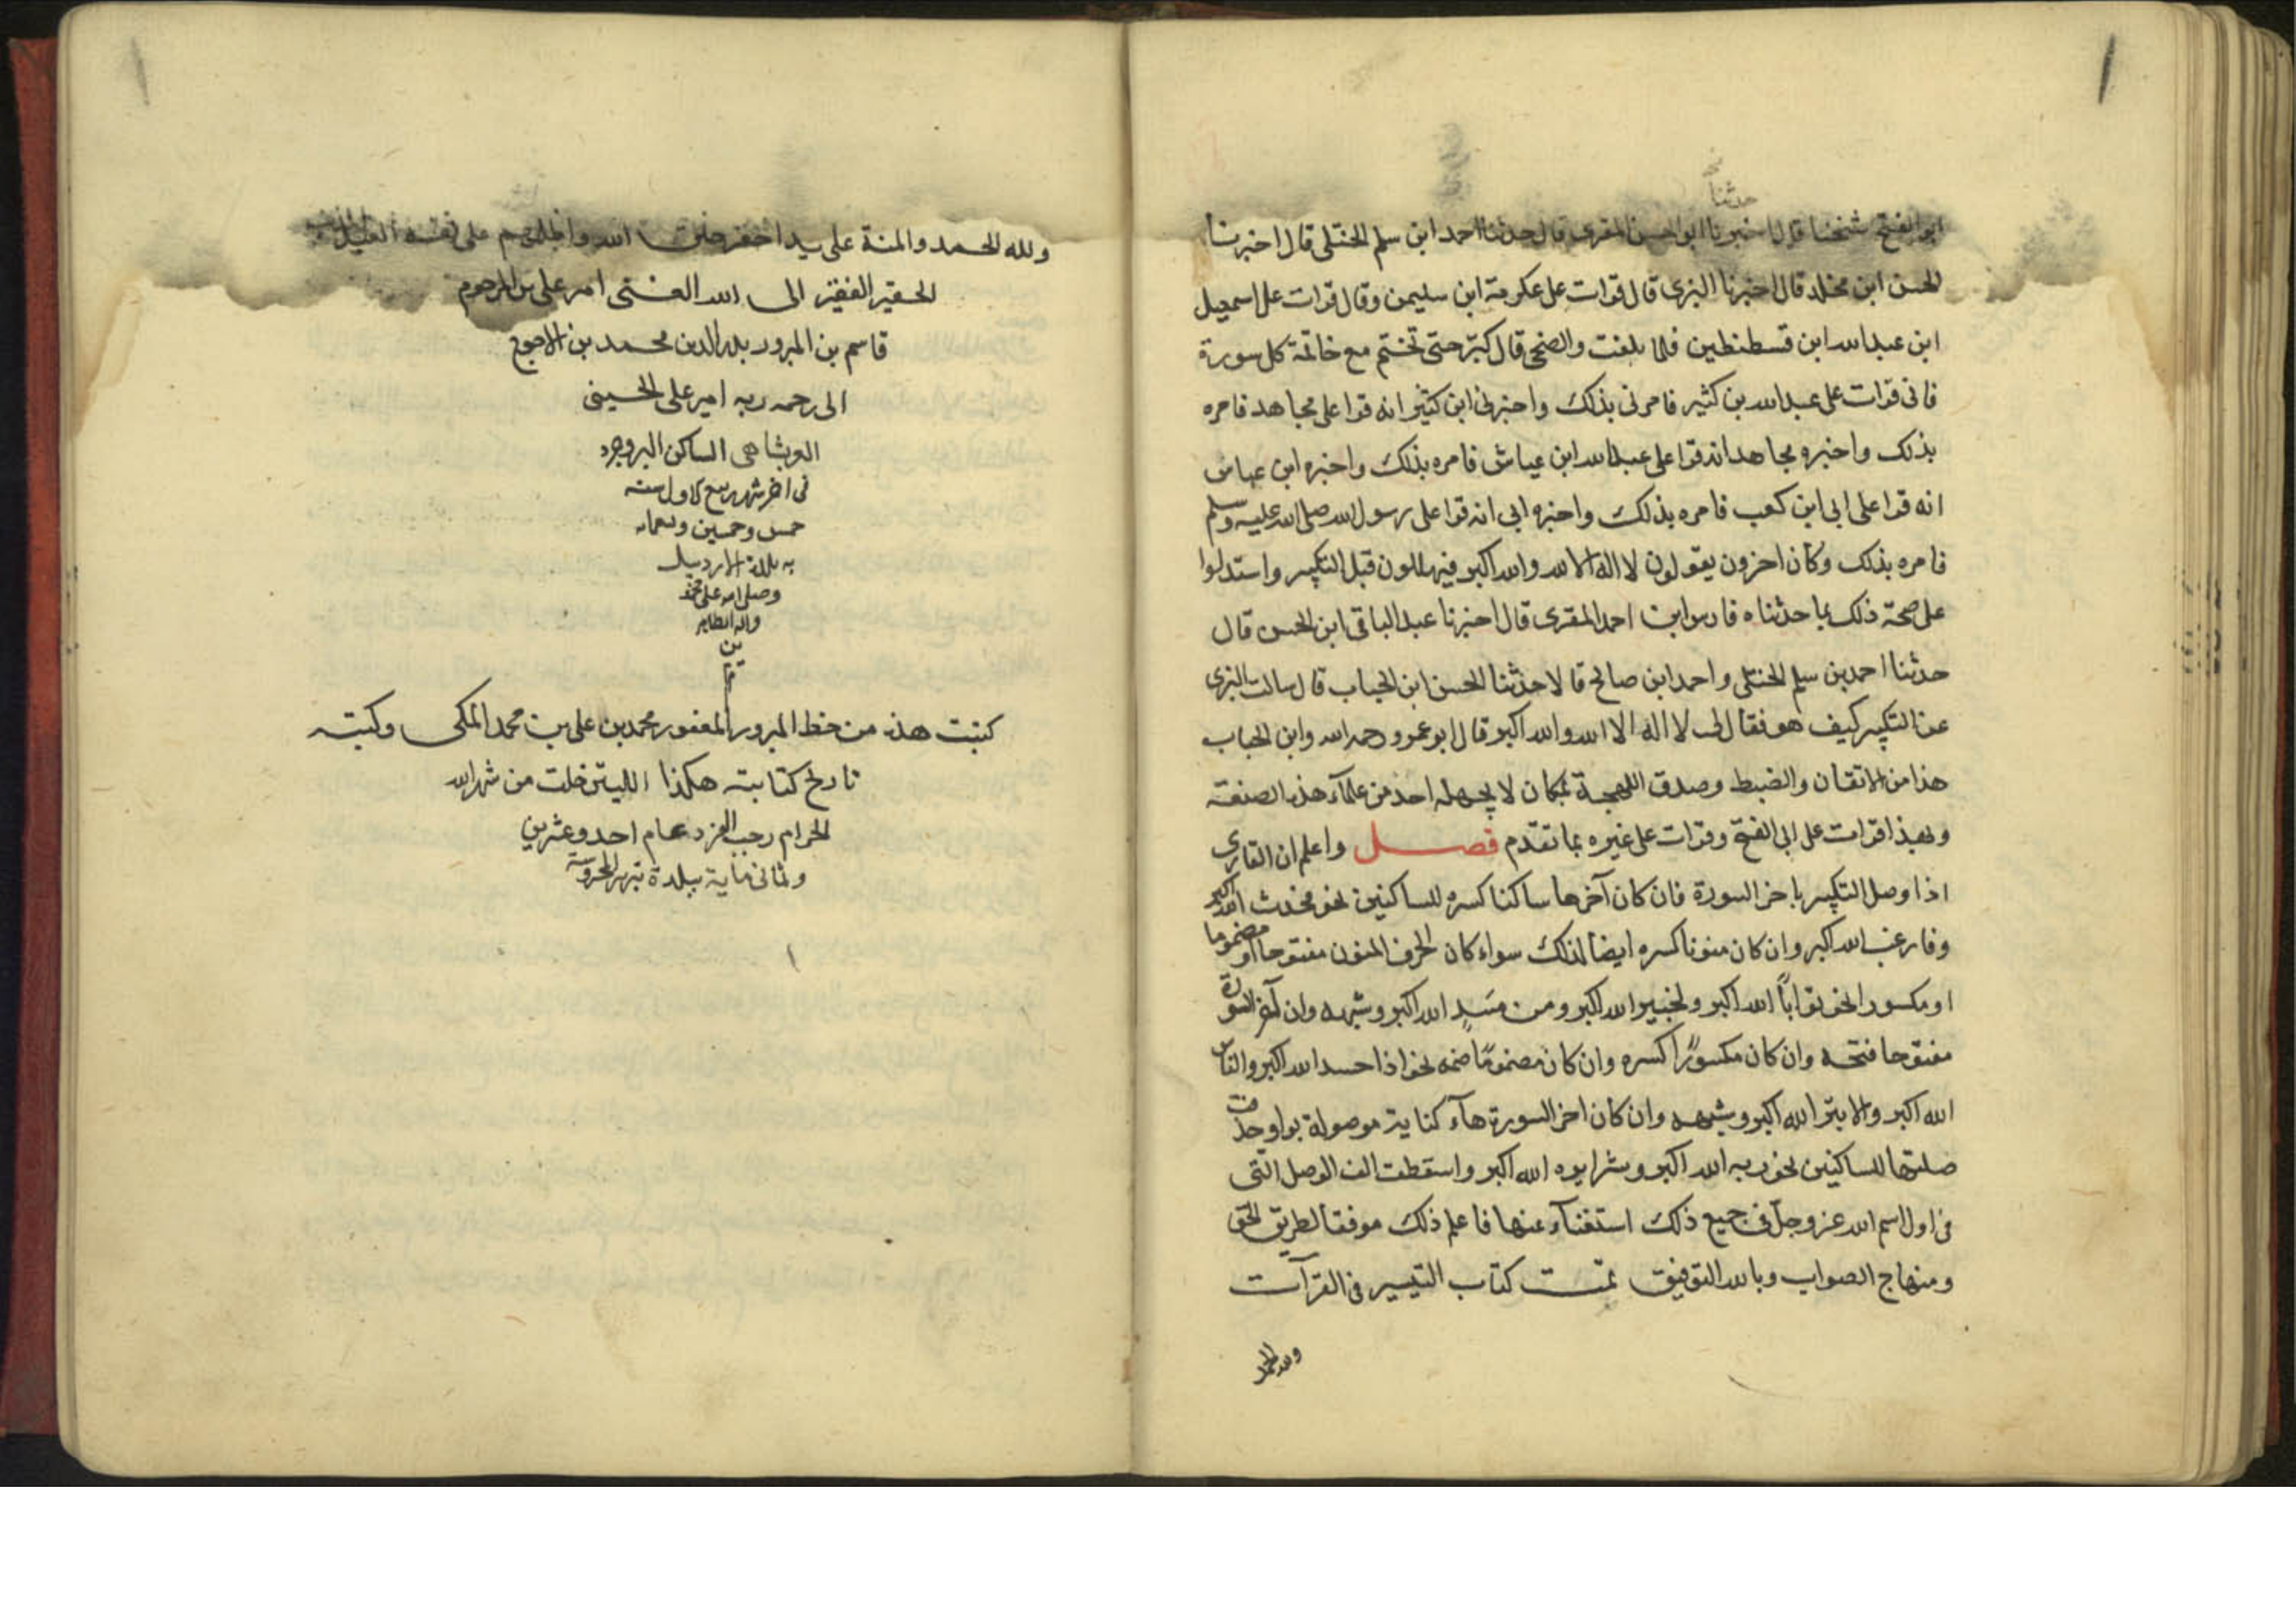 حدثنا
ابو الفتح شيخنا قال اخبرنا ابو الحسن المقرى قال حدثنا احمد ابن سلم الختلى قال اخبرنا
الحسن ابن مخلد قال اخبرنا البزى قال قرات على عكرمة ابن سليمن وقال قرات على اسمعيل
ابن عبد الله ابن قسطنطين فلما بلغت والضحى قال كبّر حتى تختم مع خاتمة كل سورة
فانى قرات على عبد الله بن كثير فامرنى بذلك واخبرنى ابن كثير انه قرا على مجاهد فامره
بذلك واخبره مجاهد انه قرا على عبد الله ابن عباس فامره بذلك واخبره ابن عباس
انه قرا على ابى ابن كعب فامره بذلك واخبره ابى انه قرا على رسول الله صلى الله عليه وسلم
فامره بذلك وكان اخرون يقولون لا اله الا الله والله اكبر فيهللون قبل التكبير واستدلوا
على صحة ذلك بما حدثناه فارس ابن احمد المقرى قال اخبرنا عبد الباقى ابن الحسن قال
حدثنا احمد بن سلم الختلى واحمد ابن صالح قالا حدثنا الحسن ابن الحباب قال سالت البزى
عن التكبير كيف هو فقال لى لا اله الا الله والله اكبر قال ابو عمرو رحمه الله وابن الحباب
هذا من الاتقان والضبط وصدق اللهجة بمكان لا يجهله احد من علماء هذه الصنعة
وبهذا قرات على ابى الفتح وقرات على غيره بما تقدم فصل واعلم ان القارى
اذا وصل التكبير باخر السورة فان كان آخرها ساكنا كسره للساكنين نحو فحدث الله اكبر
وفارغب الله اكبر وان كان منونا كسره ايضا لذلك سواء كان الحرف المنون مفتوحا او مضموما
او مكسورا نحو توّاباً الله اكبر ولخبير الله اكبر ومن مَسَدٍ الله اكبر وشبهه وان آخر السورة
مفتوحا فتحه وان كان مكسورًا كسره وان كان مضمومًا ضمه نحو اذا حسد الله اكبر والناس
الله اكبر والابتر الله اكبر وشبهه وان كان اخر السورة هاء كناية موصولة بواو حذفت
صلتها للساكنين نحو ربه الله اكبر وشرا يره الله اكبر واسقطت الف الوصل التى
فى اول اسم الله عز وجلّ فى جميع ذلك استغناء عنها فاعلم ذلك موفقا لطريق الحق
ومنهاج الصواب وبالله التوفيق تمت كتاب التيسير فى القرآت
ولله الحمد
ولله الحمد والمنة على يد احقر خلق الله على نفسه العبد
الحقير الفقير الى الله الغنى امير على بن المرحوم
قاسم بن المبرور بدر الدين محمد بن الاحوج
الى رحمه ربه امير على الحسينى
الساكن البروجرد
فى اخر شهر ربيع الاول سنه
خمس وخمسين وتسعمائه
به بلدة الاردبيل
وصلى الله على محمد
واله الطاهر
ين
كتبت هذه من خط المبرور المغفور محمد بن على بن محمد المكى وكتبته
تاريخ كتابته هكذا الليلتين خلت من شهر الله
الحرام رجب الفرد عام احد وعشرين
وثمانى ماية ببلدة تبريز المحروسة